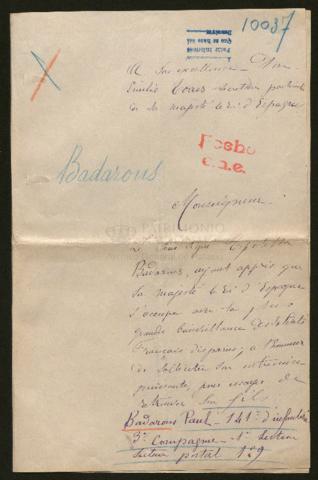 10037
A Son excellence Don
Emilio Torres secrétaire particulier
de sa majesté le Roi d'Espagne
Fecho
Badarous
Monseigneur
PATRIMONIO
Le
Badarous, ayant appris que
Sa majesté le Roi d'Espagne
s'occupe avec la plus
grande bienveillance des soldats
Français disparus, a l'honneur
de solliciter son
puissante, pour essayer de
retrouver son fils
Badarous Paul - 141e d'infanterie
3e Compagnie - 1e Section
Secteur postal 139